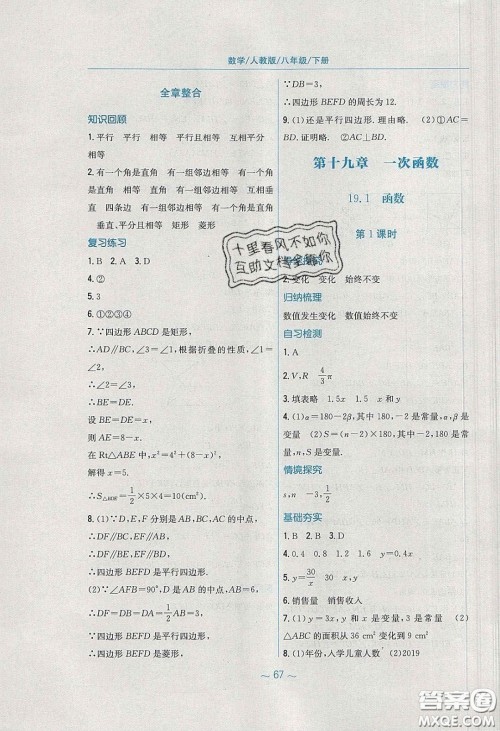 数学/人教版/八年级/下册
全章整合
知识回顾
1.平行 平行 平行且相等 互相平分
相等
2.有一个角是直角 有一组邻边相等 有
一个角是直角 有一组邻边相等 互相垂
直 四条边 有一组邻边相等 有一个角
是直角 垂直且平分 相等 矩形 菱形
复习练习
1.B 2.A 3.D
4.②
5.3
6.①②③④
7.∵四边形ABCD是矩形,
∴AD//BC,∠3=∠1,根据折叠的性质,∠2=
∠1,
∴∠2=∠3,
∴BE=DE.
设BE=DE=x,
则AE=8-x.
在Rt△ABE中,x²=4²+(8-x)²,
解得x=5.
∴S△BDE=1/2×5×4=10(cm²).
8.(1)∵D、E、F分别是AB、AC的中点,
∴DF//BC,EF//AB,
∴DF//BE,EF//BD,
∴四边形BEFD是平行四边形.
(2)∵∠AFB=90°,D是AB的中点,
∴DF=DB=DA=1/2AB=3,
∴四边形BEFD是平行四边形,
∴四边形BEFD是菱形,
∵DB=3,
∴四边形BEFD的周长为12.
9.(1)还是平行四边形.理由略. (2)①AC=
BD.证明略. ②AC⊥BD
第十九章 一次函数
19.1 函数
第1课时
2.变化 变化 始终不变
归纳梳理
数值发生变化 数值始终不变
自习检测
1.A
2.V,R 4/3π
3.填表略 1.5x 1.5 x和y
4.(1)α=180-2β,其中180,-2是常量,α,β是
变量 (2)S=(n-2)×180,其中180,-2是常
量,n,S是变量.
情境探究
s,n -3,3
基础夯实
1.B 2.B 3.D
5.y=30/x 30 x,y
6.销售量 销售收入
7.(1)y=3x,y和x是变量,3是常量 (2)
△ABC的面积从36 cm²变化到9 cm²
8.(1)年份,入学儿童人数 (2)2019
～67～
十里春风不如你
答案圈
MXQE.COM